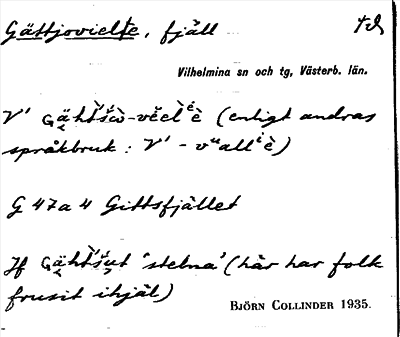 Gättjovielte, fjäll
Vilhelmina sn och tg, Västerb. län.
(enligt andras
språkbruk:
G 47a 4 Gittsfjället
Jf "stelna" (här har folk
frusit ihjäl)
BJÖRN COLLINDER 1935.